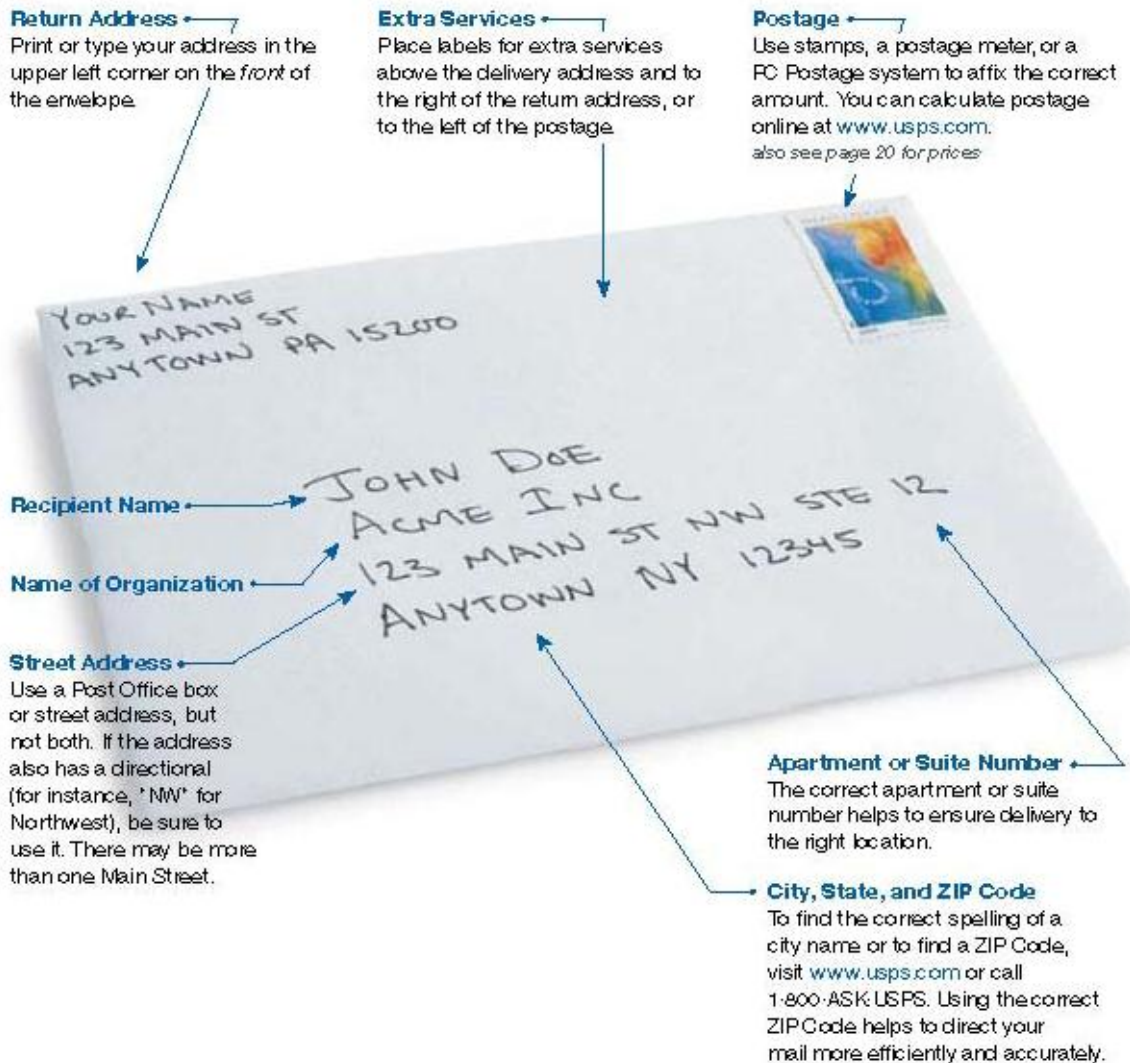 Return Address
Print or type your address in the
upper left corner on the front of
the envelope.
Extra Services
Place labels for extra services
above the delivery address and to
the right of the return address, or
to the left of the postage.
Postage
Use stamps, a postage meter, or a
PC Postage system to affix the correct
amount. You can calculate postage
online at www.usps.com.
also see page 20 for prices
YOUR NAME
123 MAIN ST
ANYTOWN PA 15200
Recipient Name
JOHN DOE
ACME INC
123 MAIN ST NW STE 12
ANYTOWN NY 12345
Name of Organization
Street Address
Use a Post Office box
or street address, but
not both. If the address
also has a directional
(for instance, "NW" for
Northwest), be sure to
use it. There may be more
than one Main Street.
Apartment or Suite Number
The correct apartment or suite
number helps to ensure delivery to
the right location.
City, State, and ZIP Code
To find the correct spelling of a
city name or to find a ZIP Code,
visit www.usps.com or call
1-800-ASK-USPS. Using the correct
ZIP Code helps to direct your
mail more efficiently and accurately.